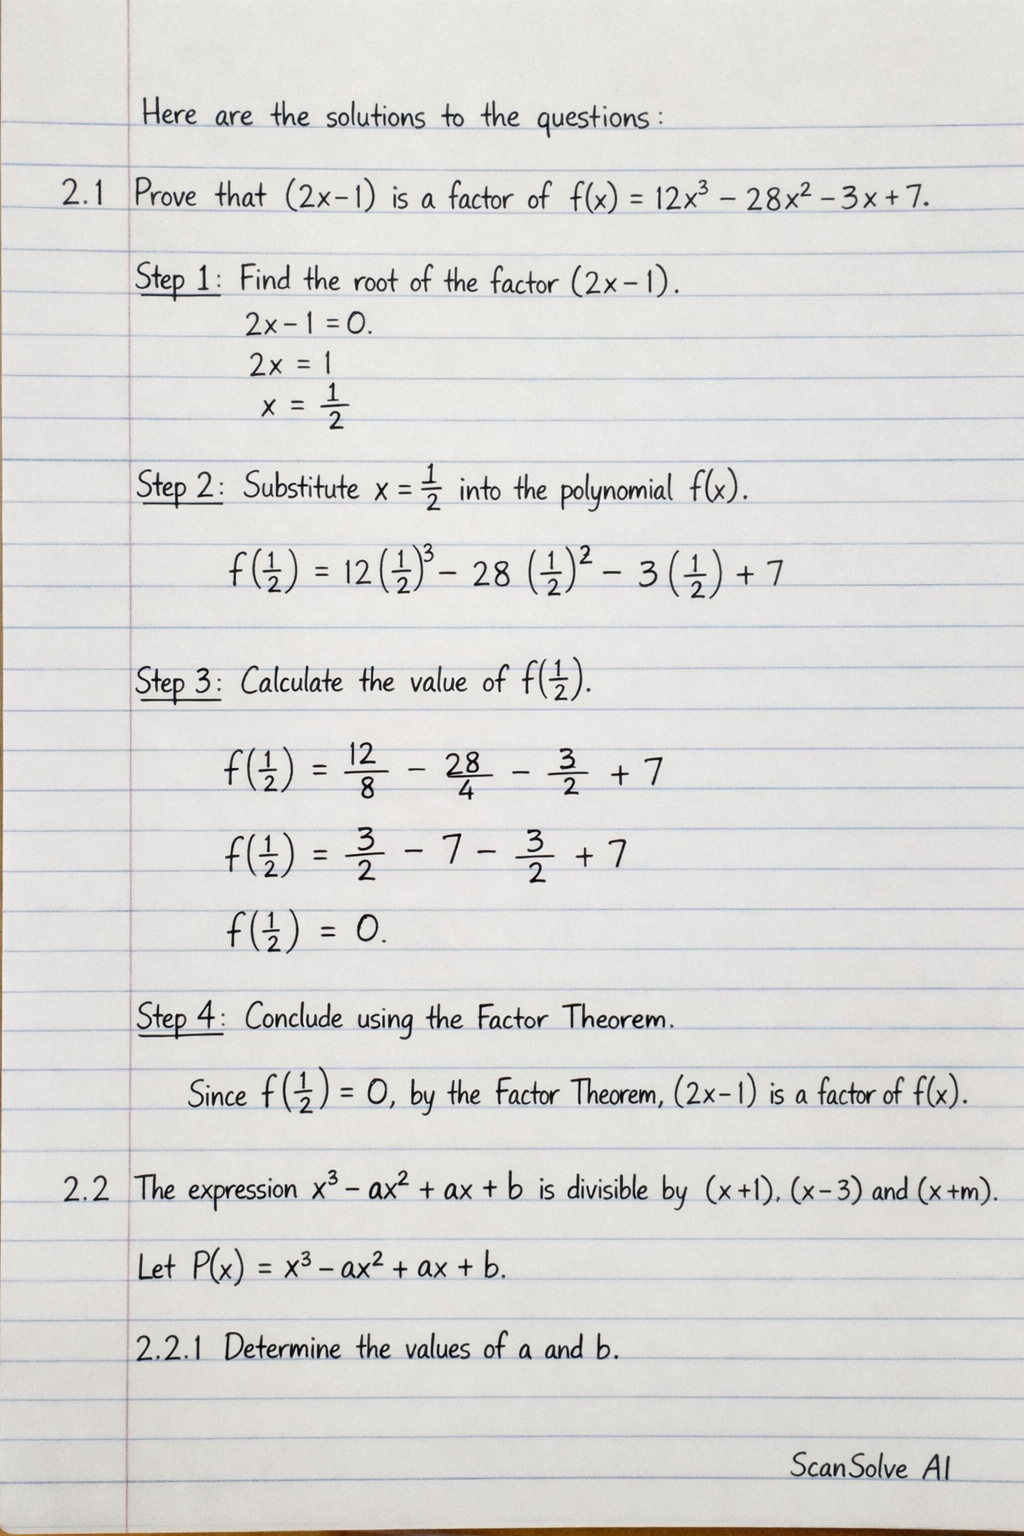 Here are the solutions to the questions:
2.1 Prove that (2x-1) is a factor of f(x) = 12x³ - 28x² - 3x + 7.
Step 1: Find the root of the factor (2x-1).
2x-1 = 0.
2x = 1
x = 1/2
Step 2: Substitute x = 1/2 into the polynomial f(x).
f(1/2) = 12(1/2)³ - 28(1/2)² - 3(1/2) + 7
Step 3: Calculate the value of f(1/2).
f(1/2) = 12/8 - 28/4 - 3/2 + 7
f(1/2) = 3/2 - 7 - 3/2 + 7
f(1/2) = 0.
Step 4: Conclude using the Factor Theorem.
Since f(1/2) = 0, by the Factor Theorem, (2x-1) is a factor of f(x).
2.2 The expression x³ - ax² + ax + b is divisible by (x+1), (x-3) and (x+m).
Let P(x) = x³ - ax² + ax + b.
2.2.1 Determine the values of a and b.
ScanSolve AI